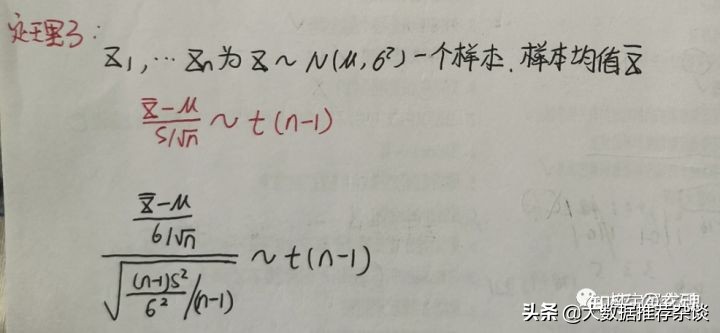 定理3:
X̄1,…X̄n为X̄~N(μ,6²)一个样本.样本均值X̄
(X̄-μ)/(S/√n)~t(n-1)
((X̄-μ)/(6/√n))/√((n-1)S²/6²/(n-1))~t(n-1)
头条@大数据推荐杂谈